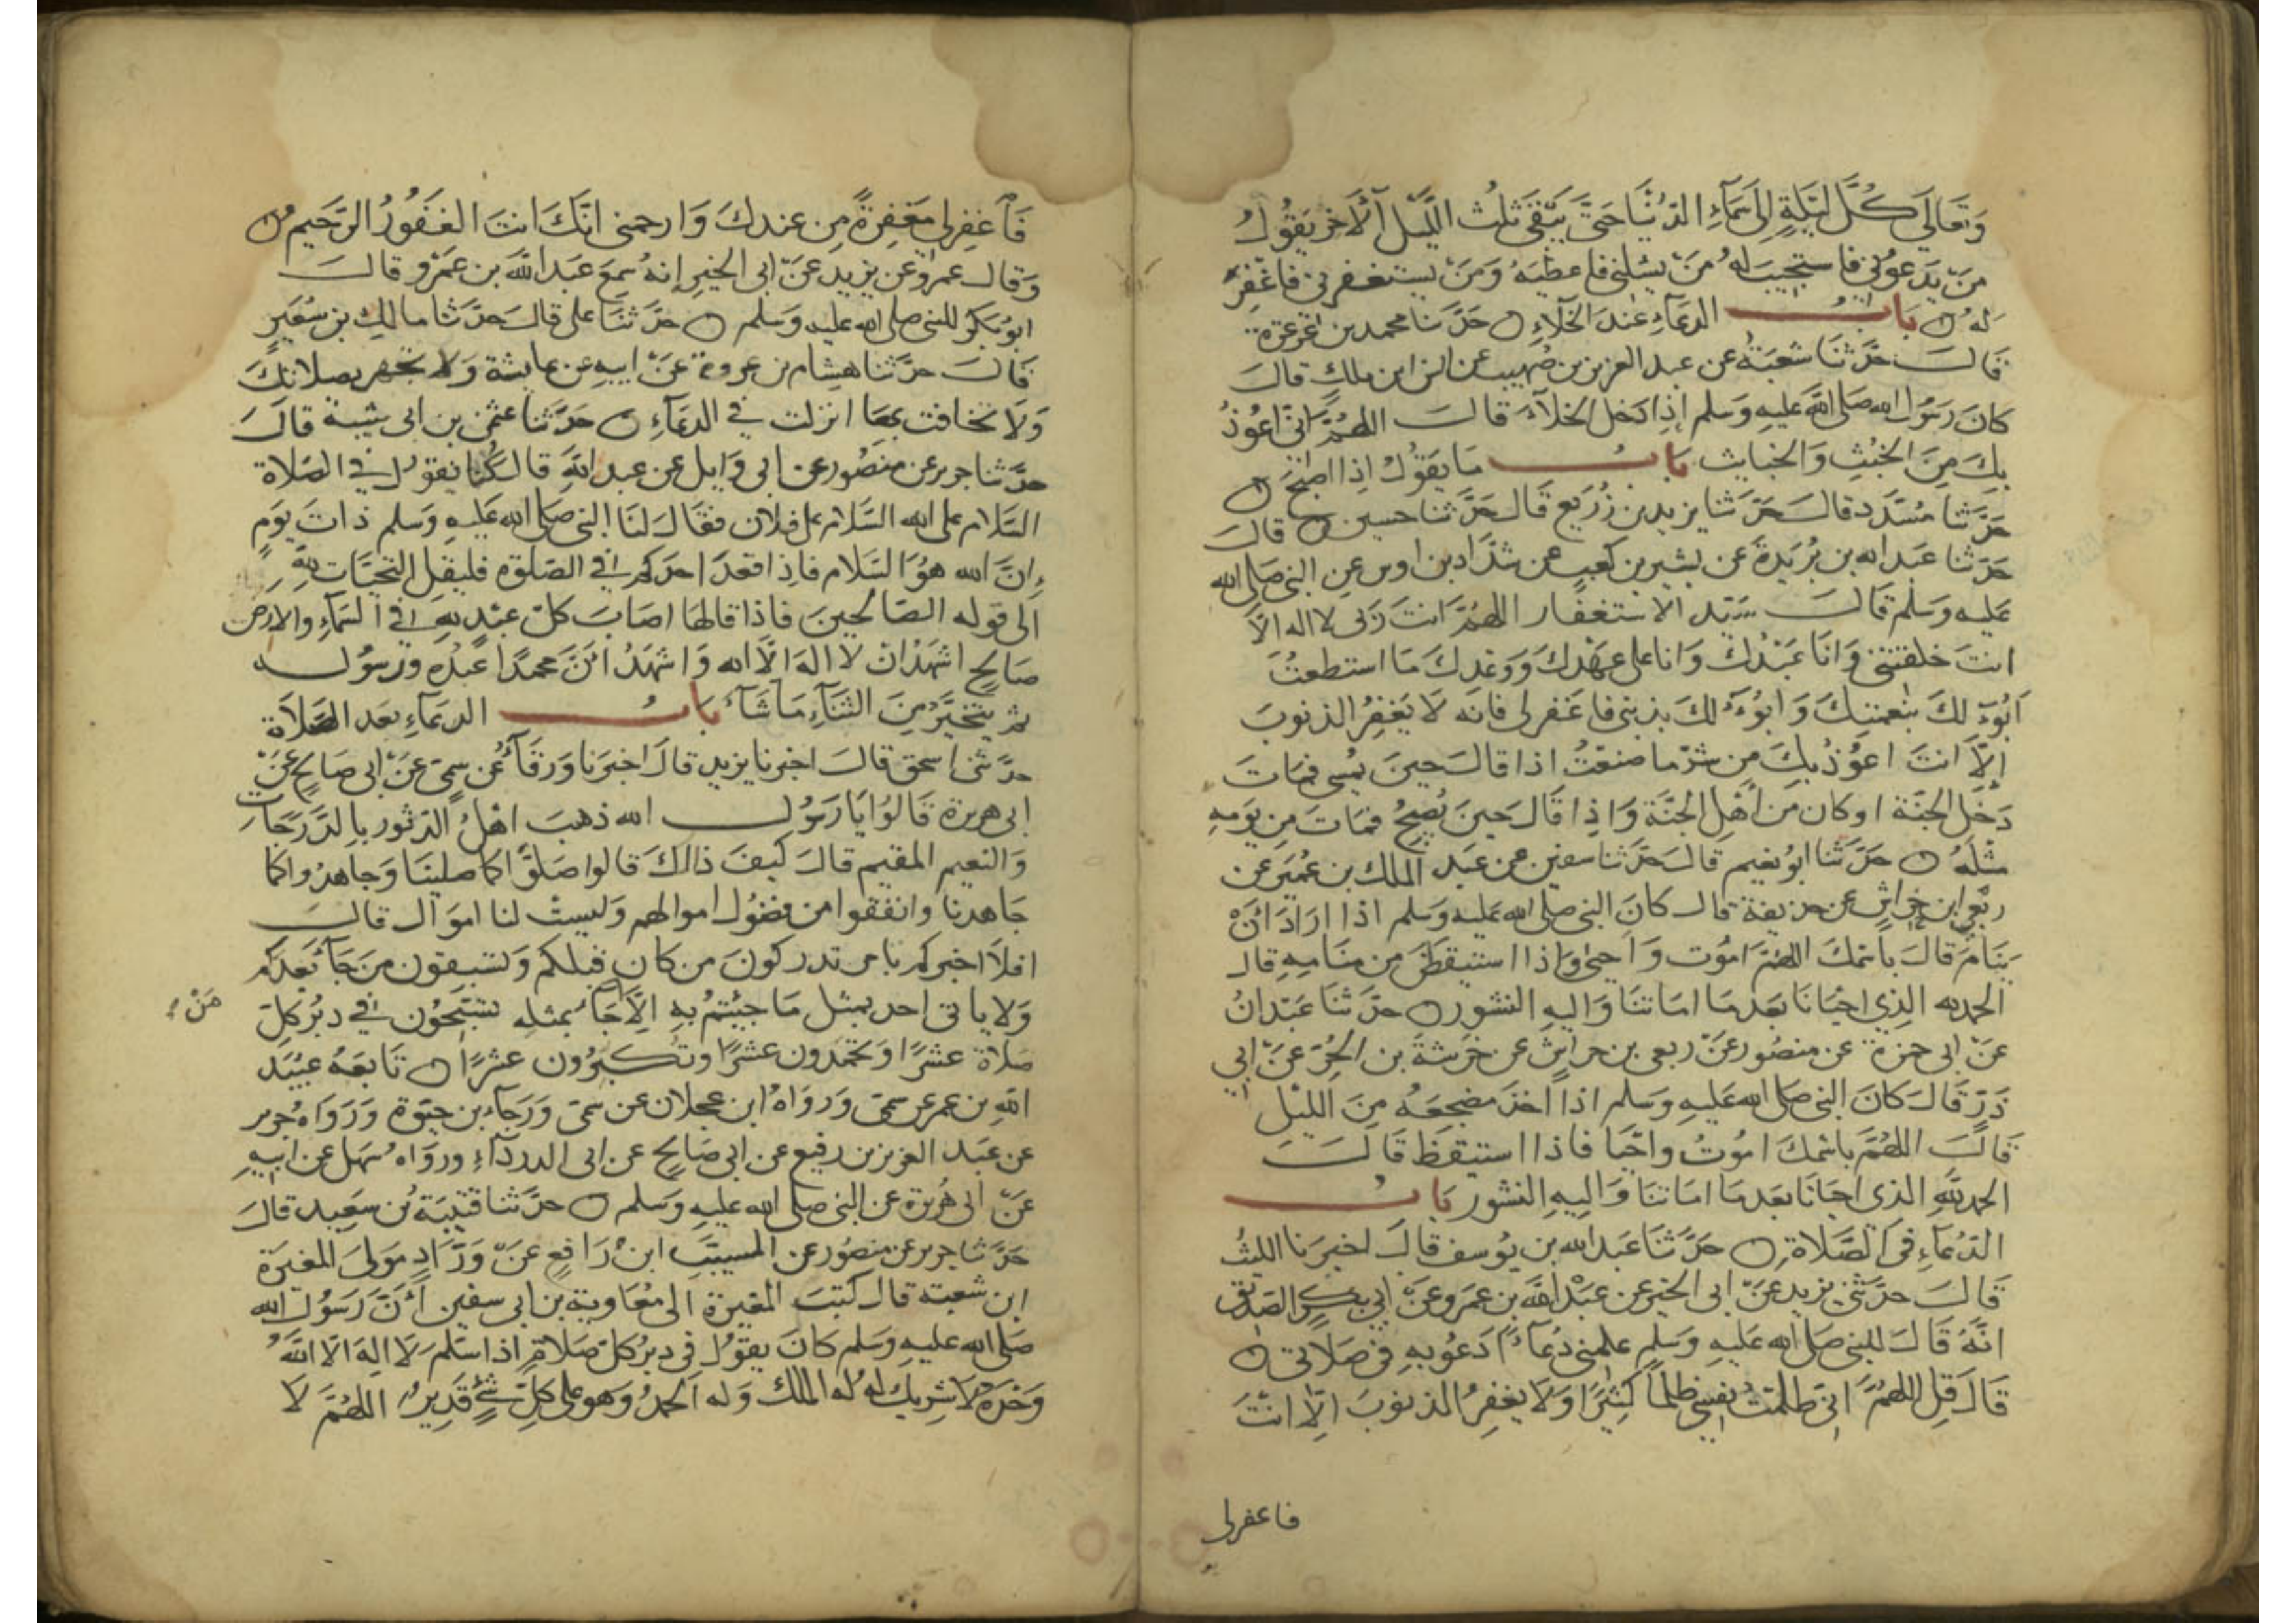 وَتَعَالَى كُلَّ لَيْلَةٍ اِلَى سَمَاءِ الدُّنْيَا حَتَّى يَبْقَى ثُلُث اللَّيْل الْآخر يَقُولُ
مَنْ يَدعُوني فاستجيبَ لهُ مَنْ يسئلني فاعطيَهُ وَمَنْ يستغفرني فاغْفِرُ
لهُ بابُ الدعَاءِ عندَ الخَلَاءِ حَدَّثنا محمد بن عَرعَرة
قالَ حَدَّثنَا شعبَةُ عن عبد العزيز بن صُهيب عن انس ابن ملك قالَ
كانَ رَسُول الله صَلى اللَّه عليهِ وَسَلم إذا دَخل الخلآءَ قالَ اللهُمَّ انّى اعُوذُ
بِكَ مِنَ الخبُثِ وَالخبايث بَابُ مَا يَقُولُ اذِا اصْبَحَ
حَدَّثنَا مُسَدَّد قالَ حَدَّثنا يزيد بن زُرَيع قَالَ حَدَّثنا حسين قالَ
حَدَّثنا عَبَد الله بن بُرَيدَةَ عَن بشير بن كَعب عن شَدَّاد بن اوس عن النبى صَلى الله
عَليه وَسَلم قَالَ سَيّد الاستغفَار اللهُمَّ انتَ رَبّى لا اله الَّا
انتَ خلقتنى وَانَا عَبْدُكَ وَانا على عهْدِكَ وَوَعْدِكَ مَا استطعتُ
اَبُوءُ لكَ بنْعمتِكَ وَابُوءُ لكَ بذنبى فاغفر لى فانه لَا يَغْفِرُ الذنوبَ
اِلَّا انتَ اعَوُذُ بِكَ من شرّ ما صَنعَتُ اذا قالَ حِينَ يُمسى فمَاتَ
دَخَل الجنَّة اوكان مَن أهْل الجَنَّة وَاذِا قَالَ حينَ يُصبحُ فمَاتَ مِن يَومهِ
مثْلَهُ حَدَّثنا ابُو نعَيم قَالَ حَدَّثنا سفين عن عَبَد الملك بن عُمَير عن
ربْعى ابن خراش عن حذيفة قالَ كَانَ النبى صلى الله عَليه وَسلم اذا ارَادَ انْ
يَنَامَ قَالَ باسْمكَ اللهُمَّ امُوت وَاحيٰى وَاذا استيقظَ من منَامِهِ قالَ
الحمد لله الذِي احيَانَا بعَدمَا امَاتنَا وَاليهِ النشور حدَّثنَا عَبَدانُ
عَنْ ابى حمزة عن منصُور عَنْ ربعى بن حراش عن خَرَشَةَ بن الحُرّ عَنْ ابي
ذَرّ قَالَ كانَ النبى صَلى الله عليهِ وَسَلم اذا اخذَ مضجعَهُ مِنَ الليْلِ
قالَ اللهُمَّ باسْمكَ امُوتُ وَاحْيَا فَاذا استيقظ قَالَ
الحمد للهِ الذى احيَانَا بعَدمَا امَاتنَا وَاليهِ النشور بَابُ
الدُعَاءِ فى الصَّلَاة حَدَّثنَا عَبَد الله بن يوُسف قالَ اخبرَنا الليثُ
قَالَ حدَّثنى يزيد عَنْ ابى الخير عن عَبْد الله بن عَمرو عَنْ ابى بكرٍ الصّديق
انَّهُ قَالَ للنبى صَلى الله عَليهِ وَسَلم علمنى دُعَاءً ادَعُو بهِ فى صَلاتى
قَالَ قِل اللهُمَّ انى ظلَمَتُ نفسى ظلماً كثِيرًا وَلَا يغفرُ الذنوبَ الِّا انْتَ
فاغفرلى
فَاغْفِرلى مَغفِرةً مِن عندكَ وَارحمنى انَّكَ انتَ الغَفوُرُ الرَّحَيم
وَقالَ عمرو عن يزيد عَنْ ابى الخير انهُ سمعَ عَبدَ اللَّه بن عَمْرو قالَ
ابوُ بكر للنبى صلى الله عليه وَسلم حَدَّثنَا على قالَ حَدَّثنا مالك بن سُعَير
قَالَ حدَّثنا هشِام بن عروة عَنْ ابيهِ عن عايشة وَلا تجهر بصلاتِكَ
وَلَا تخافت بهَا انزلت في الدعَاءِ حَدَّثنا عثمن بن ابى شيبة قالَ
حدَّثنا جرير عن منصُور عن ابى وَايل عن عبد اللهِ قالَ كُنا نقولُ في الصَلاة
السَّلام على الله السَّلام على فلان فقَالَ لنَا النبى صَلى الله عَليهِ وَسلم ذاتَ يوَمٍ
إنَّ الله هوُ السَّلام فاذِا قعَدَ احدَكم فى الصَلوة فليقل التحيَّات للهِ
الى قوله الصَالحينَ فاذا قالهَا اصَابَ كلّ عبْد للهِ فى السَّماءِ والارض
صَالح اشهَدُ ان لا الهَ الَّا الله وَاشهَدُ انَّ محمدًا عبدُه ورَسُوله
ثم يتخيَّرُ مِنَ الثنَآءِ مَا شَآءَ بَابُ الدعَاءِ بعَد الصَلاَة
حدَّثنى اسحق قالَ اخبرنا يزيد قالَ اخبَرنا وَرقَآءُ عن سُمَىّ عَنْ ابى صَالح عَنْ
ابى هريرة قَالوُا يَا رَسُول الله ذهبَ اهْلُ الدّثور بالدَّرَجَات
وَالنعيم المقيم قالَ كيفَ ذالكَ قالوا صَلوَّا كما صَلينَا وَجاهدُوا كما
جَاهدنا وانفقوا من فضوُل اموالهم وَليستْ لنا اموَال قالَ
افلَا اخبركم بامر تدركونَ من كانَ قبلكم وَتسبقون منَ جَآءَ بَعدَكم
وَلا ياتى احد بمثل مَا جئتمُ بهِ الِّا جَآءَ بمثلهِ تسَبّحوُن فى دبُر كلّ
مَنْ
صَلاَة عشرًا وَتحمدَون عشرًا وتكبرُون عشرًا تَابعَهُ عبُيَد
اللهِ بن عمر عن سُمَىّ وَرَوَاهُ ابن عجلان عن سمىّ وَرَجآء بن حيَوة وَرَوَاهُ جرير
عن عَبَد العزيز بن رفيع عن ابى صَالح عن ابى الدردَآءِ وروَاهُ سُهَيل عن ابيهِ
عَنْ ابى هُريرَة عن النبى صلى الله عليه وَسلم حَدَّثنا قتيبَة بْن سعَيد قالَ
حَدَّثنا جرير عن منصُور عن المسيَّب ابنْ رَافعٍ عَنْ وَرَّاد مَولىَ المغيرَة
ابن شعبة قالَ كتبَ المغيرة الى مُعَاوية بن ابى سفين أنَّ رَسوُل الله
صَلى الله عليهِ وَسَلم كانَ يقوُل فى دبر كلّ صَلاة اذا سَلم لَا الهَ الَّا اللهُ
وَحْدَهُ لَا شرِيكَ لهُ لهُ الملكُ وَله الحمدُ وَهو على كلّ شئٍ قَدِيرُ اللهُمَّ لَا